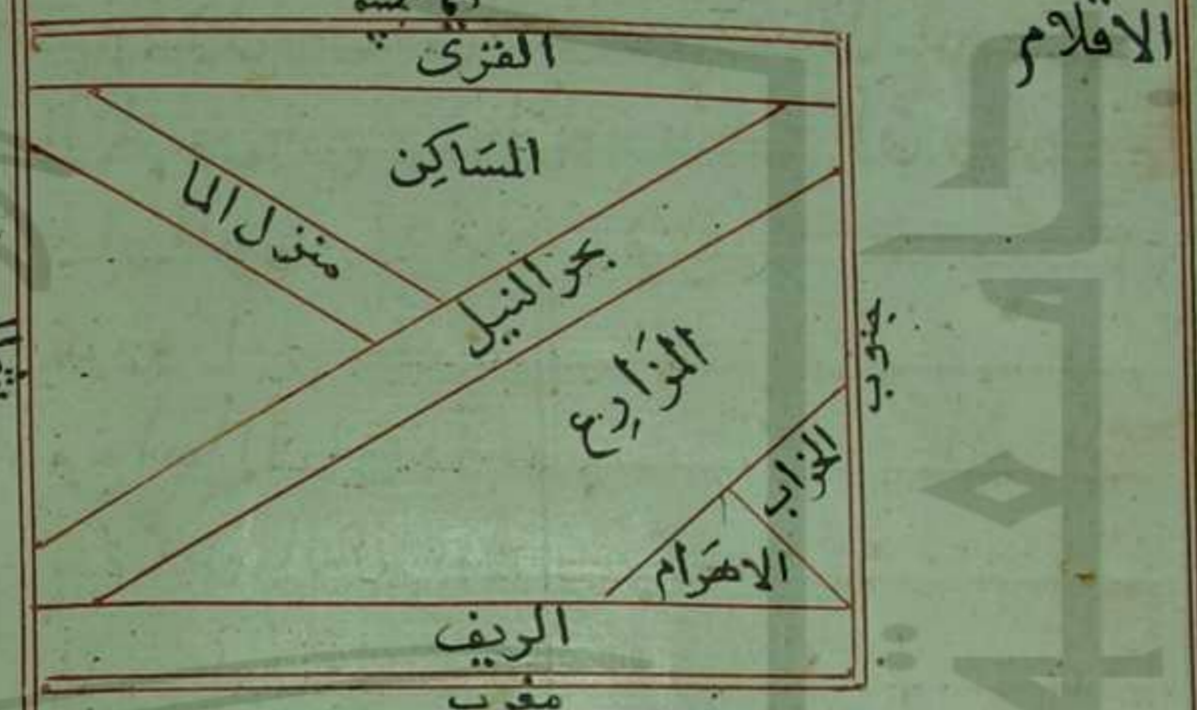 الاقلام
القرى
المسَاكِن
منزل الما
بحر النيل
المزَارِع
جنوب
الخراب
الاهرَام
الريف
مغرب